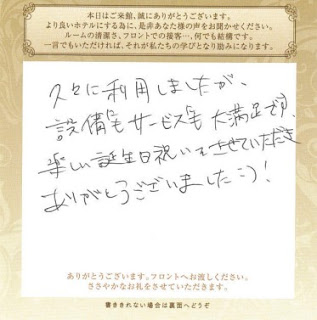 本日はご来館、誠にありがとうございます。
より良いホテルにする為に、是非あなた様の声をお聞かせください。
ルームの清潔さ、フロントでの接客…、何でも結構です。
一言でもいただければ、それが私たちの学びとなり励みになります。
久々に利用しましたが、
設備もサービスも大満足です。
楽しい誕生日祝いをさせていただき
ありがとうございました！
ありがとうございます。フロントへお渡しください。
ささやかなお礼をさせていただきます。
書ききれない場合は裏面へどうぞ